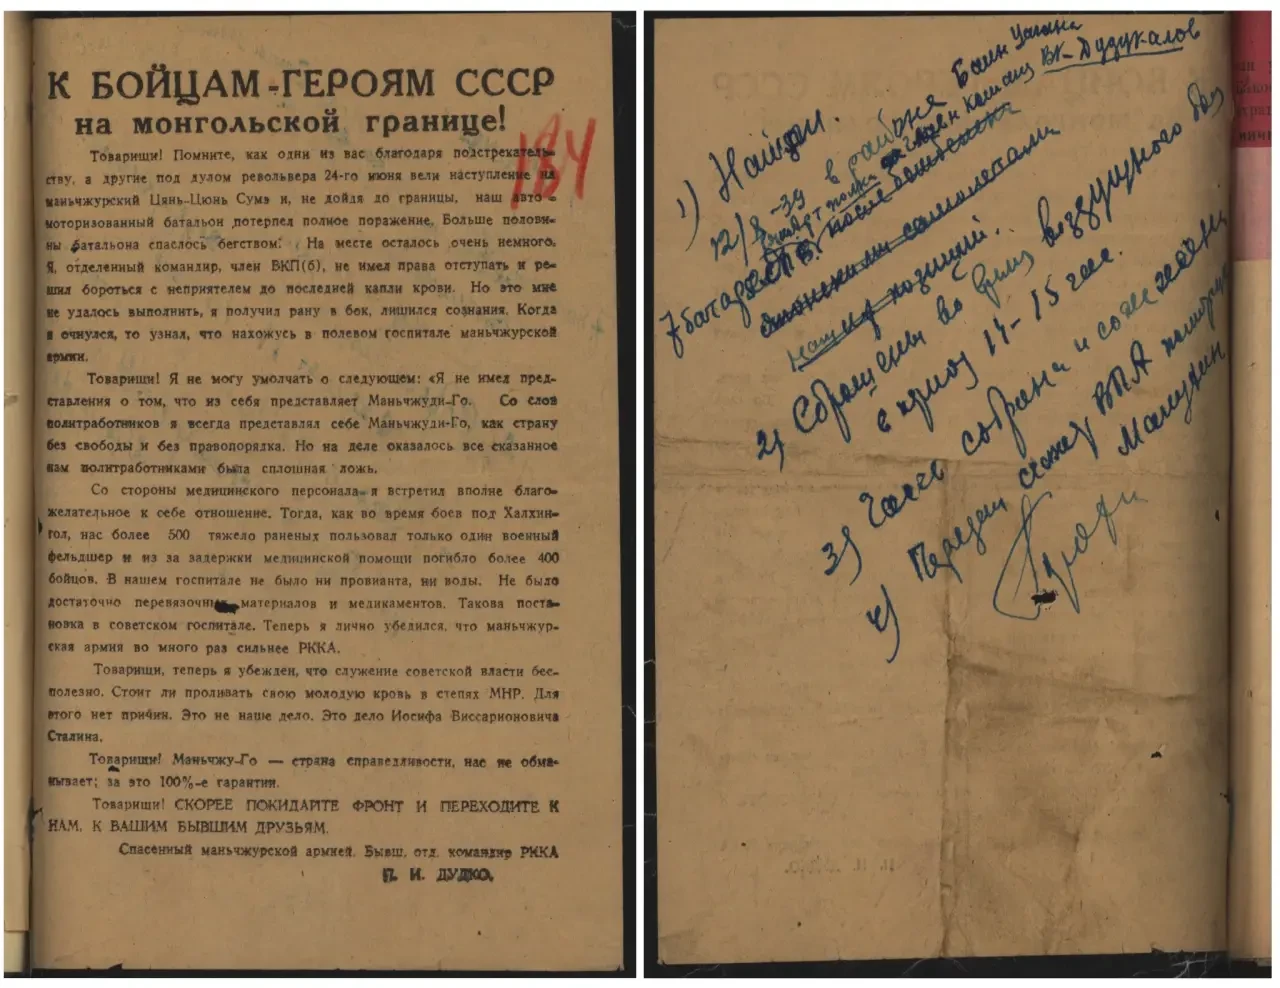 К БОЙЦАМ-ГЕРОЯМ СССР
на монгольской границе!
184
Товарищи! Помните, как одни из вас благодаря подстрекатель-
ству, а другие под дулом револьвера 24-го июня вели наступление на
маньчжурский Цянь-Цюнь Сумэ и, не дойдя до границы, наш авто-
моторизованный батальон потерпел полное поражение. Больше полови-
ны батальона спаслось бегством. На месте осталось очень немного.
Я, отделенный командир, член ВКП(б), не имел права отступать и ре-
шил бороться с неприятелем до последней капли крови. Но это мне
не удалось выполнить, я получил рану в бок, лишился сознания. Когда
я очнулся, то узнал, что нахожусь в полевом госпитале маньчжурской
армии.
Товарищи! Я не могу умолчать о следующем: «Я не имел пред-
ставления о том, что из себя представляет Маньчжуди-Го. Со слов
политработников я всегда представлял себе Маньчжуди-Го, как страну
без свободы и без правопорядка. Но на деле оказалось все сказанное
нам политработниками была сплошная ложь.
Со стороны медицинского персонала я встретил вполне благо-
желательное к себе отношение. Тогда, как во время боев под Халхин-
гол, нас более 500 тяжело раненых пользовал только один военный
фельдшер и из за задержки медицинской помощи погибло более 400
бойцов. В нашем госпитале не было ни провианта, ни воды. Не было
достаточно перевязочных материалов и медикаментов. Такова поста-
новка в советском госпитале. Теперь я лично убедился, что маньчжур-
ская армия во много раз сильнее РККА.
Товарищи, теперь я убежден, что служение советской власти бес-
полезно. Стоит ли проливать свою молодую кровь в степях МНР. Для
этого нет причин. Это не наше дело. Это дело Иосифа Виссарионовича
Сталина.
Товарищи! Маньчжу-Го — страна справедливости, нас не обма-
нывает; за это 100%-е гарантии.
Товарищи! СКОРЕЕ ПОКИДАЙТЕ ФРОНТ И ПЕРЕХОДИТЕ К
НАМ, К ВАШИМ БЫВШИМ ДРУЗЬЯМ.
Спасенный маньчжурской армией. Бывш. отд. командир РККА
П. И. ДУДКО.
1) Найден.
12/8-39 в районе Баин Цагана
ВК-Дудукалов
7 батарее после бомбежки
японскими самолетами
наших позиций.
2) Сброшены во время воздушного боя
в период 14-15 час.
3) Часть собрана и сожжена
4) Передан